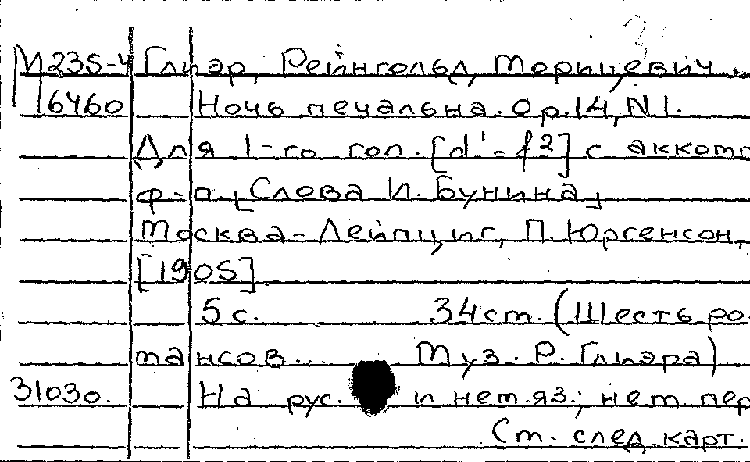 М235-4 Глиэр, Рейнгольд Морицевич
16460 Ночь печальна. Op.14, N1.
Для 1-го гол. [d'-f2] с акком
ф-п. [Слова И. Бунина]
Москва-Лейпциг, П. Юргенсон,
[1905]
5 с. 34 см. (Шесть ро-
мансов... Муз. Р. Глиэра)
31030. На рус. и нем. яз.; нем. пер
См. след. карт.